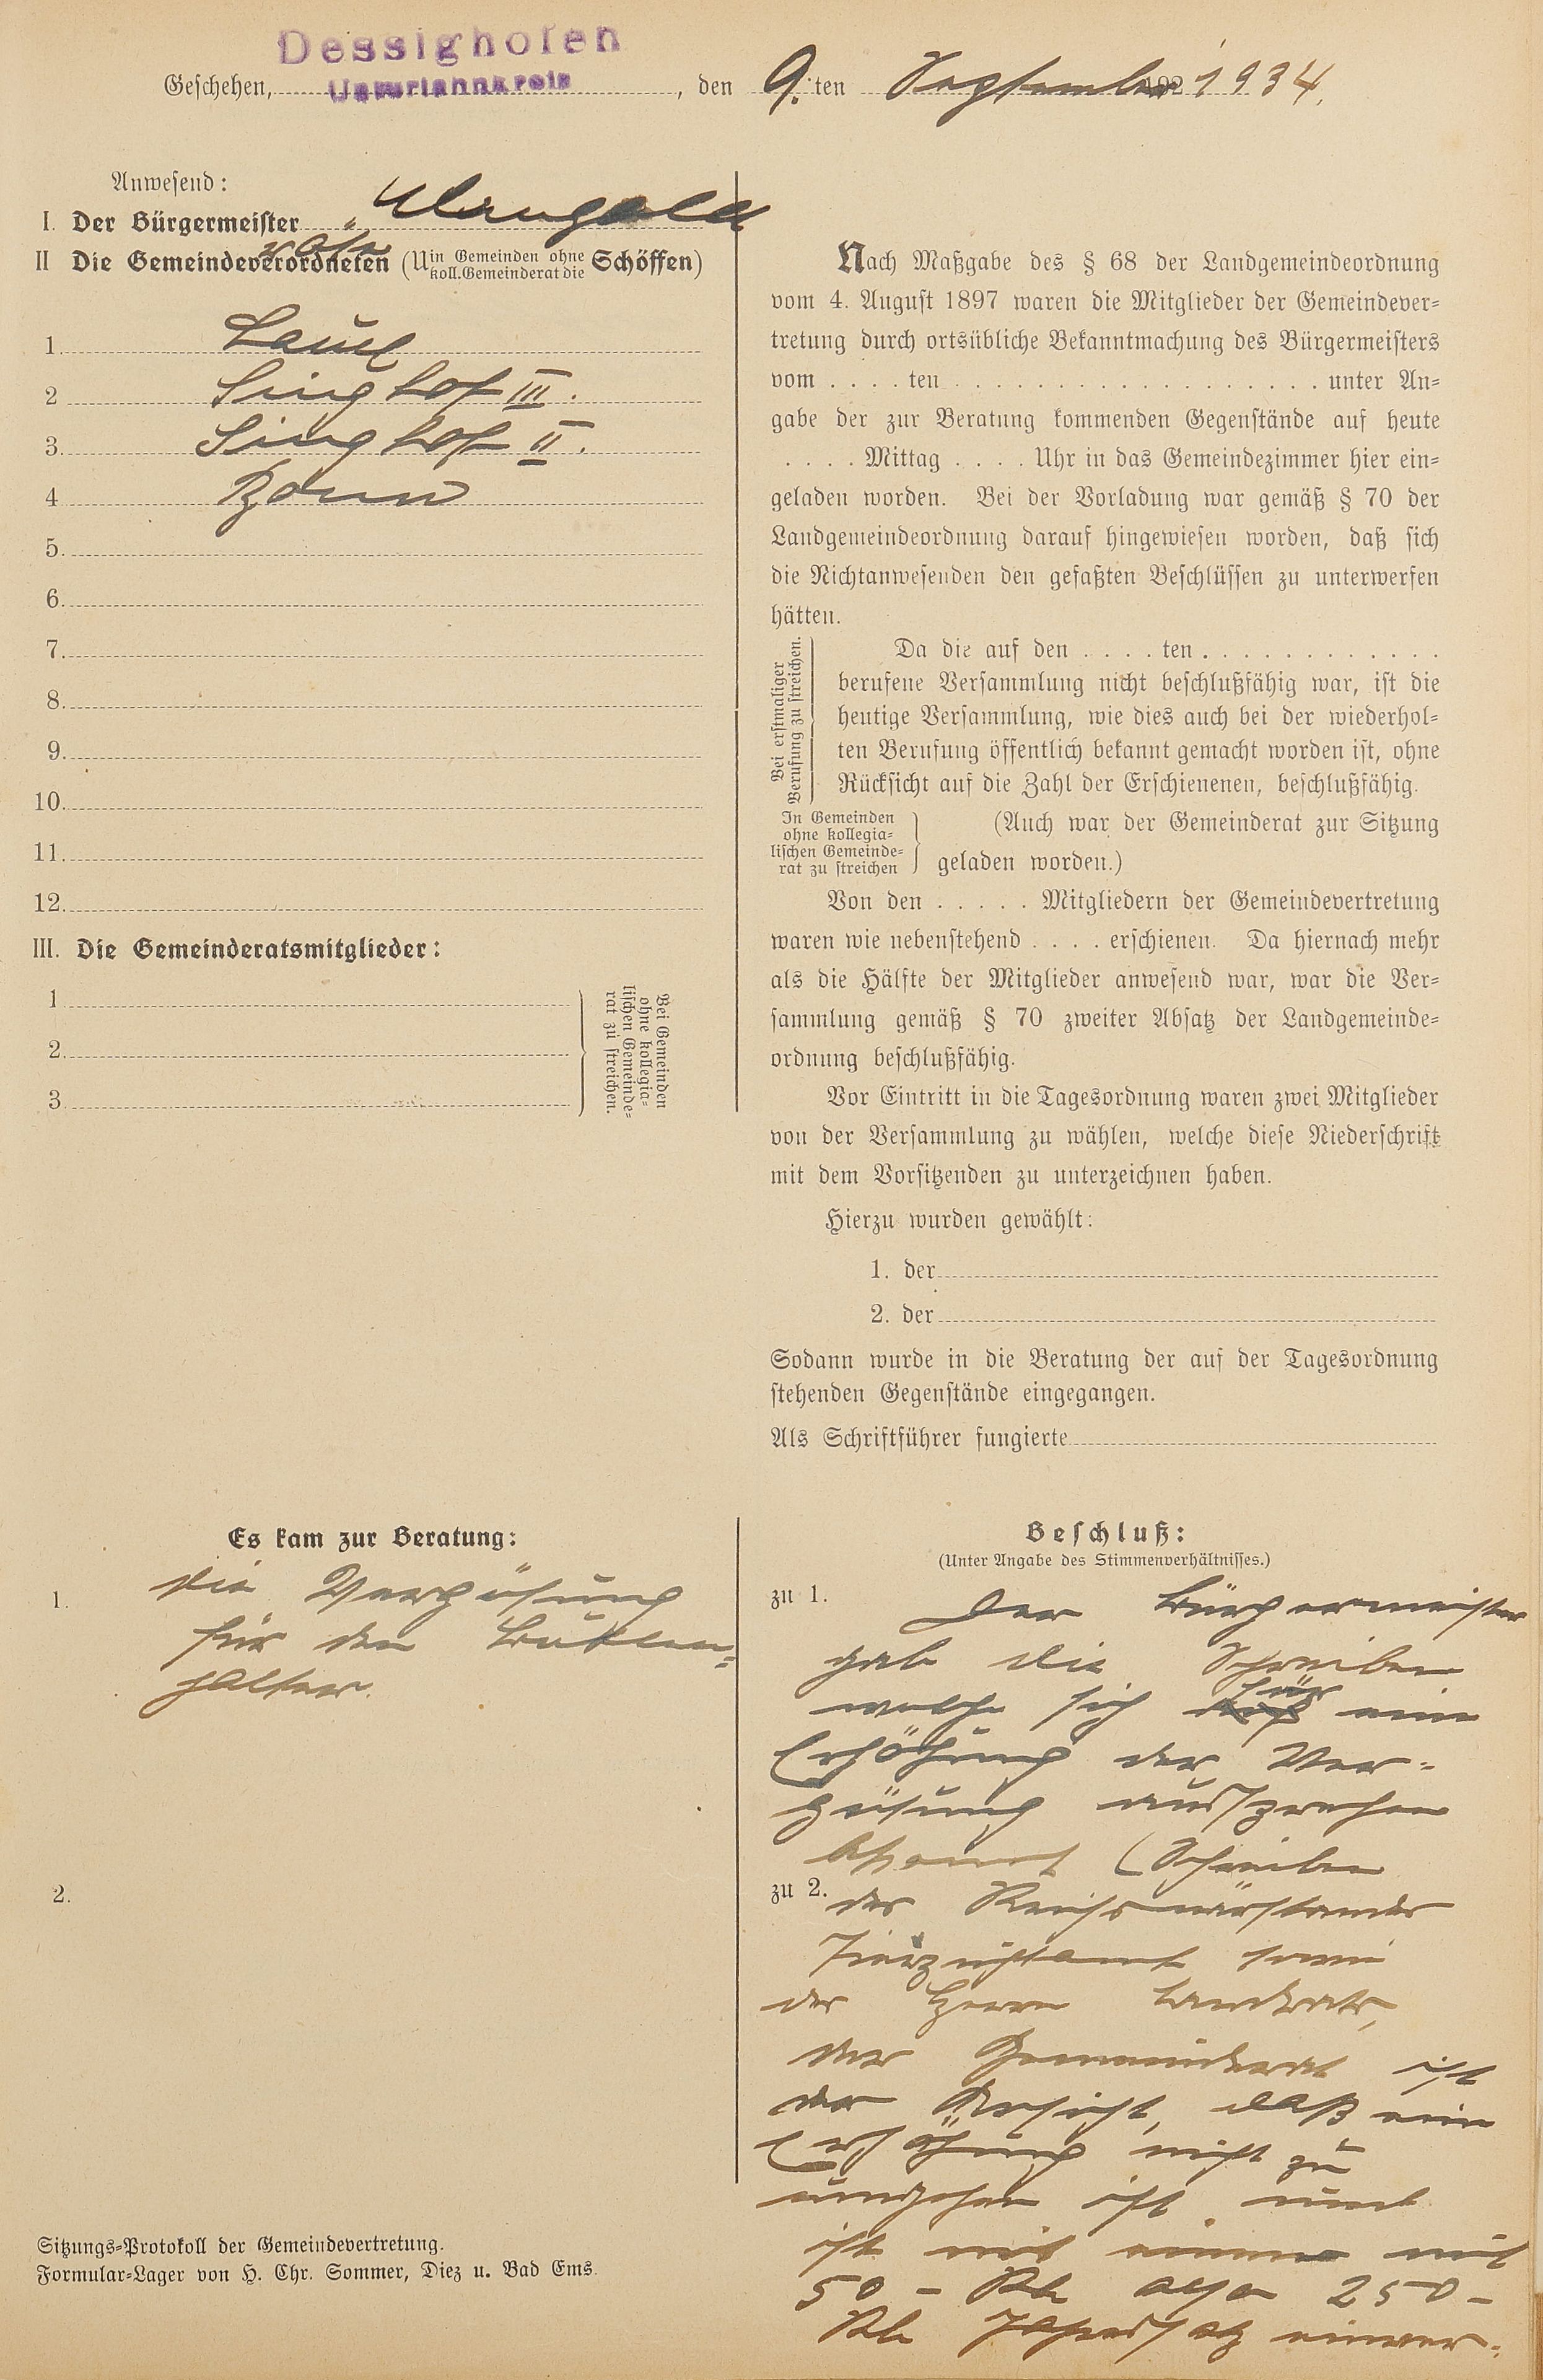 Dessighofen
Unterlahnkreis
Geschehen, , den 9. ten September 192 1934.
Anwesend:
I. Der Bürgermeister Mangold
räte
II Die Gemeindeverordneten (U in Gemeinden ohne koll. Gemeinderat die Schöffen)
1 Lauel
2 Singhof III.
3. Singhof II.
4
5.
6.
7.
8.
9.
10.
11.
12.
III. Die Gemeinderatsmitglieder:
1
2.
3.
Bei Gemeinden
ohne kollegia-
lischen Gemeinde-
rat zu streichen.
Nach Maßgabe des § 68 der Landgemeindeordnung
vom 4. August 1897 waren die Mitglieder der Gemeindever-
tretung durch ortsübliche Bekanntmachung des Bürgermeisters
vom . . . . ten . . . . . . . . . . . . . . . . . . unter An-
gabe der zur Beratung kommenden Gegenstände auf heute
. . . . Mittag . . . . Uhr in das Gemeindezimmer hier ein-
geladen worden. Bei der Vorladung war gemäß § 70 der
Landgemeindeordnung darauf hingewiesen worden, daß sich
die Nichtanwesenden den gefaßten Beschlüssen zu unterwerfen
hätten.
Bei erstmaliger
Berufung zu streichen.
Da die auf den . . . . ten . . . . . . . . . . . .
berufene Versammlung nicht beschlußfähig war, ist die
heutige Versammlung, wie dies auch bei der wiederhol-
ten Berufung öffentlich bekannt gemacht worden ist, ohne
Rücksicht auf die Zahl der Erschienenen, beschlußfähig.
In Gemeinden
ohne kollegia-
lischen Gemeinde-
rat zu streichen
(Auch war der Gemeinderat zur Sitzung
geladen worden.)
Von den . . . . . Mitgliedern der Gemeindevertretung
waren wie nebenstehend . . . . erschienen. Da hiernach mehr
als die Hälfte der Mitglieder anwesend war, war die Ver-
sammlung gemäß § 70 zweiter Absatz der Landgemeinde-
ordnung beschlußfähig.
Vor Eintritt in die Tagesordnung waren zwei Mitglieder
von der Versammlung zu wählen, welche diese Niederschrift
mit dem Vorsitzenden zu unterzeichnen haben.
Hierzu wurden gewählt:
1. der
2. der
Sodann wurde in die Beratung der auf der Tagesordnung
stehenden Gegenstände eingegangen.
Als Schriftführer fungierte
Es kam zur Beratung:
1. die Vergütung
für den Bullen-
halter.
2.
Beschluß:
(Unter Angabe des Stimmenverhältnisses.)
zu 1. Der Bürgermeister
gab die Schreiben
welche sich für eine
Erhöhung der Ver-
gütung aussprechen
bekannt (Schreiben
zu 2. des Reichsnährstandes
Tierzuchtamt sowie
des Herrn Landrats,
der Gemeinderat ist
der Ansicht, daß eine
Erhöhung nicht zu
umgehen ist und
ist mit einer mit
50 - Rm also 250 -
Rm Jahressatz einver-
Sitzungs-Protokoll der Gemeindevertretung.
Formular-Lager von H. Chr. Sommer, Diez u. Bad Ems.